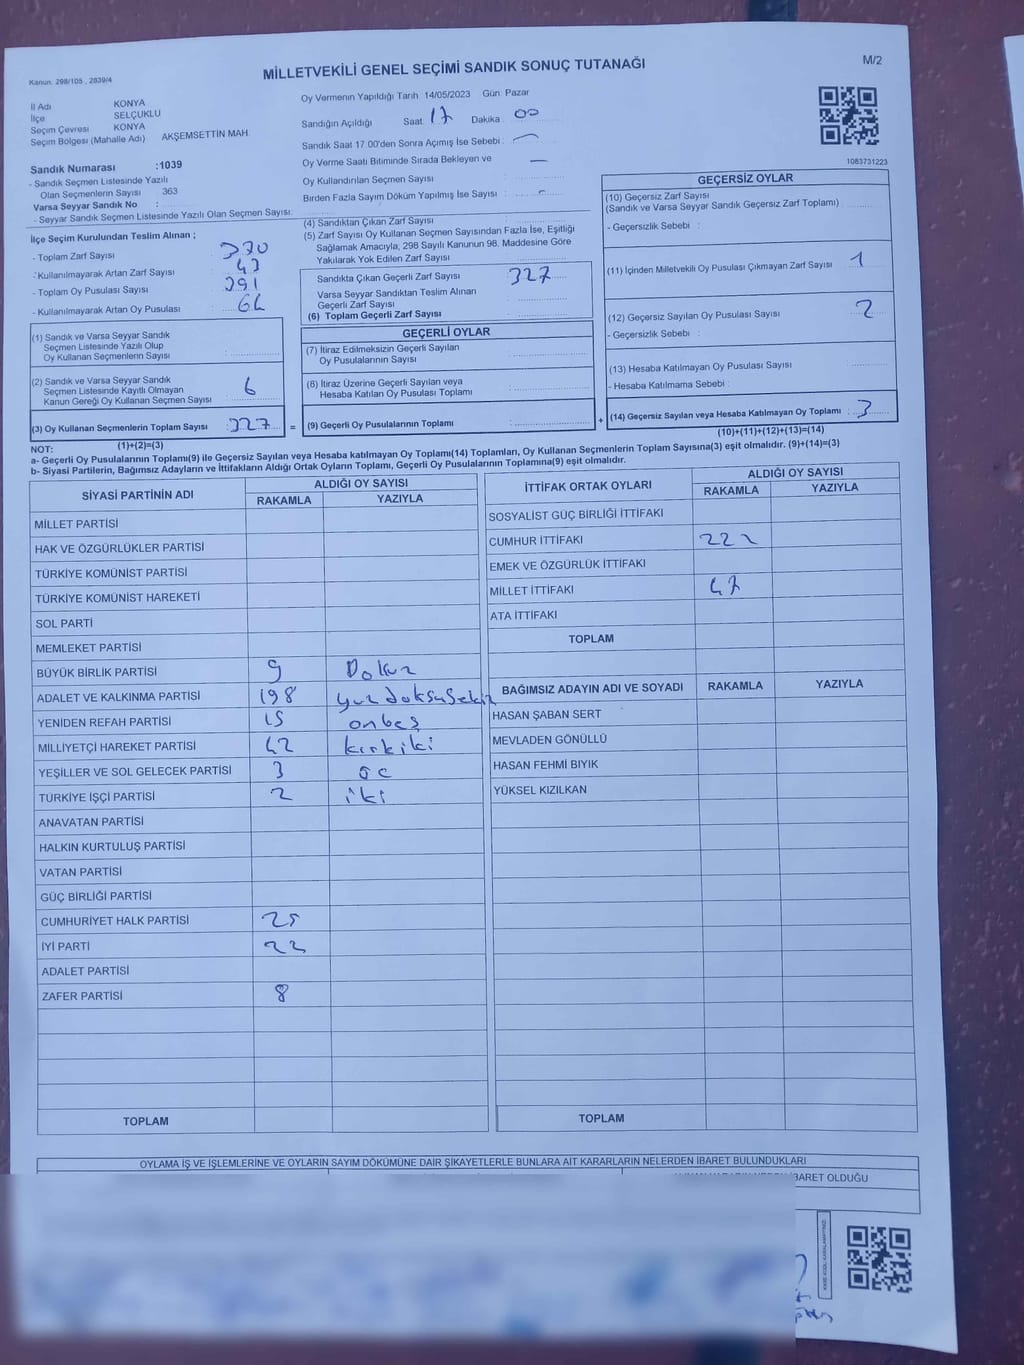 Kanun: 298/105 , 2839/4
MİLLETVEKİLİ GENEL SEÇİMİ SANDIK SONUÇ TUTANAĞI
M/2
İl Adı KONYA
İlçe SELÇUKLU
Seçim Çevresi KONYA
Seçim Bölgesi (Mahalle Adı) AKŞEMSETTİN MAH.
Oy Vermenin Yapıldığı Tarih 14/05/2023 Gün: Pazar
Sandığın Açıldığı Saat 17 Dakika 00
Sandık Saat 17.00'den Sonra Açımış İse Sebebi :
Oy Verme Saati Bitiminde Sırada Bekleyen ve
Oy Kullandırılan Seçmen Sayısı
Birden Fazla Sayım Döküm Yapılmış İse Sayısı
1083731223
Sandık Numarası :1039
- Sandık Seçmen Listesinde Yazılı
Olan Seçmenlerin Sayısı 363
Varsa Seyyar Sandık No :
- Seyyar Sandık Seçmen Listesinde Yazılı Olan Seçmen Sayısı:
İlçe Seçim Kurulundan Teslim Alınan ;
- Toplam Zarf Sayısı 370
- Kullanılmayarak Artan Zarf Sayısı 43
- Toplam Oy Pusulası Sayısı 391
- Kullanılmayarak Artan Oy Pusulası : 64
(1) Sandık ve Varsa Seyyar Sandık
Seçmen Listesinde Yazılı Olup
Oy Kullanan Seçmenlerin Sayısı :
(2) Sandık ve Varsa Seyyar Sandık
Seçmen Listesinde Kayıtlı Olmayan
Kanun Gereği Oy Kullanan Seçmen Sayısı : 6
(3) Oy Kullanan Seçmenlerin Toplam Sayısı : 327
(1)+(2)=(3)
(4) Sandıktan Çıkan Zarf Sayısı
(5) Zarf Sayısı Oy Kullanan Seçmen Sayısından Fazla İse, Eşitliği
Sağlamak Amacıyla, 298 Sayılı Kanunun 98. Maddesine Göre
Yakılarak Yok Edilen Zarf Sayısı
Sandıkta Çıkan Geçerli Zarf Sayısı 327
Varsa Seyyar Sandıktan Teslim Alınan
Geçerli Zarf Sayısı
(6) Toplam Geçerli Zarf Sayısı
GEÇERLİ OYLAR
(7) İtiraz Edilmeksizin Geçerli Sayılan
Oy Pusulalarının Sayısı
(8) İtiraz Üzerine Geçerli Sayılan veya
Hesaba Katılan Oy Pusulası Toplamı
= (9) Geçerli Oy Pusulalarının Toplamı : +
GEÇERSİZ OYLAR
(10) Geçersiz Zarf Sayısı
(Sandık ve Varsa Seyyar Sandık Geçersiz Zarf Toplamı)
- Geçersizlik Sebebi :
(11) İçinden Milletvekili Oy Pusulası Çıkmayan Zarf Sayısı 1
(12) Geçersiz Sayılan Oy Pusulası Sayısı : 2
- Geçersizlik Sebebi :
(13) Hesaba Katılmayan Oy Pusulası Sayısı :
- Hesaba Katılmama Sebebi :
(14) Geçersiz Sayılan veya Hesaba Katılmayan Oy Toplamı : 3
(10)+(11)+(12)+(13)=(14)
NOT:
a- Geçerli Oy Pusulalarının Toplamı(9) ile Geçersiz Sayılan veya Hesaba katılmayan Oy Toplamı(14) Toplamları, Oy Kullanan Seçmenlerin Toplam Sayısına(3) eşit olmalıdır. (9)+(14)=(3)
b- Siyasi Partilerin, Bağımsız Adayların ve İttifakların Aldığı Ortak Oyların Toplamı, Geçerli Oy Pusulalarının Toplamına(9) eşit olmalıdır.
SİYASİ PARTİNİN ADI ALDIĞI OY SAYISI
RAKAMLA YAZIYLA
MİLLET PARTİSİ
HAK VE ÖZGÜRLÜKLER PARTİSİ
TÜRKİYE KOMÜNİST PARTİSİ
TÜRKİYE KOMÜNİST HAREKETİ
SOL PARTİ
MEMLEKET PARTİSİ
BÜYÜK BİRLİK PARTİSİ 9 Dokuz
ADALET VE KALKINMA PARTİSİ 198 yuzdoksusekiz
YENİDEN REFAH PARTİSİ 15 onbeş
MİLLİYETÇİ HAREKET PARTİSİ 42 kırkiki
YEŞİLLER VE SOL GELECEK PARTİSİ 3 üc
TÜRKİYE İŞÇİ PARTİSİ 2 iki
ANAVATAN PARTİSİ
HALKIN KURTULUŞ PARTİSİ
VATAN PARTİSİ
GÜÇ BİRLİĞİ PARTİSİ
CUMHURİYET HALK PARTİSİ 25
İYİ PARTİ 22
ADALET PARTİSİ
ZAFER PARTİSİ 8
TOPLAM
İTTİFAK ORTAK OYLARI ALDIĞI OY SAYISI
RAKAMLA YAZIYLA
SOSYALİST GÜÇ BİRLİĞİ İTTİFAKI
CUMHUR İTTİFAKI 222
EMEK VE ÖZGÜRLÜK İTTİFAKI
MİLLET İTTİFAKI 47
ATA İTTİFAKI
TOPLAM
BAĞIMSIZ ADAYIN ADI VE SOYADI RAKAMLA YAZIYLA
HASAN ŞABAN SERT
MEVLADEN GÖNÜLLÜ
HASAN FEHMİ BIYIK
YÜKSEL KIZILKAN
TOPLAM
OYLAMA İŞ VE İŞLEMLERİNE VE OYLARIN SAYIM DÖKÜMÜNE DAİR ŞİKAYETLERLE BUNLARA AİT KARARLARIN NELERDEN İBARET BULUNDUKLARI
İBARET OLDUĞU